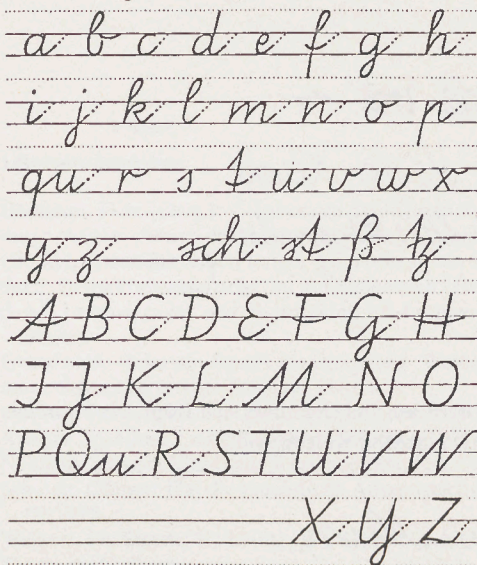 a b c d e f g h
i j k l m n o p
qu r s t u v w x
y z sch st ß tz
A B C D E F G H
I J K L M N O
P Qu R S T U V W
X Y Z